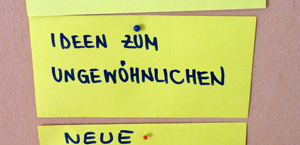 IDEEN ZUM
UNGEWÖHNLICHEN
NEUE